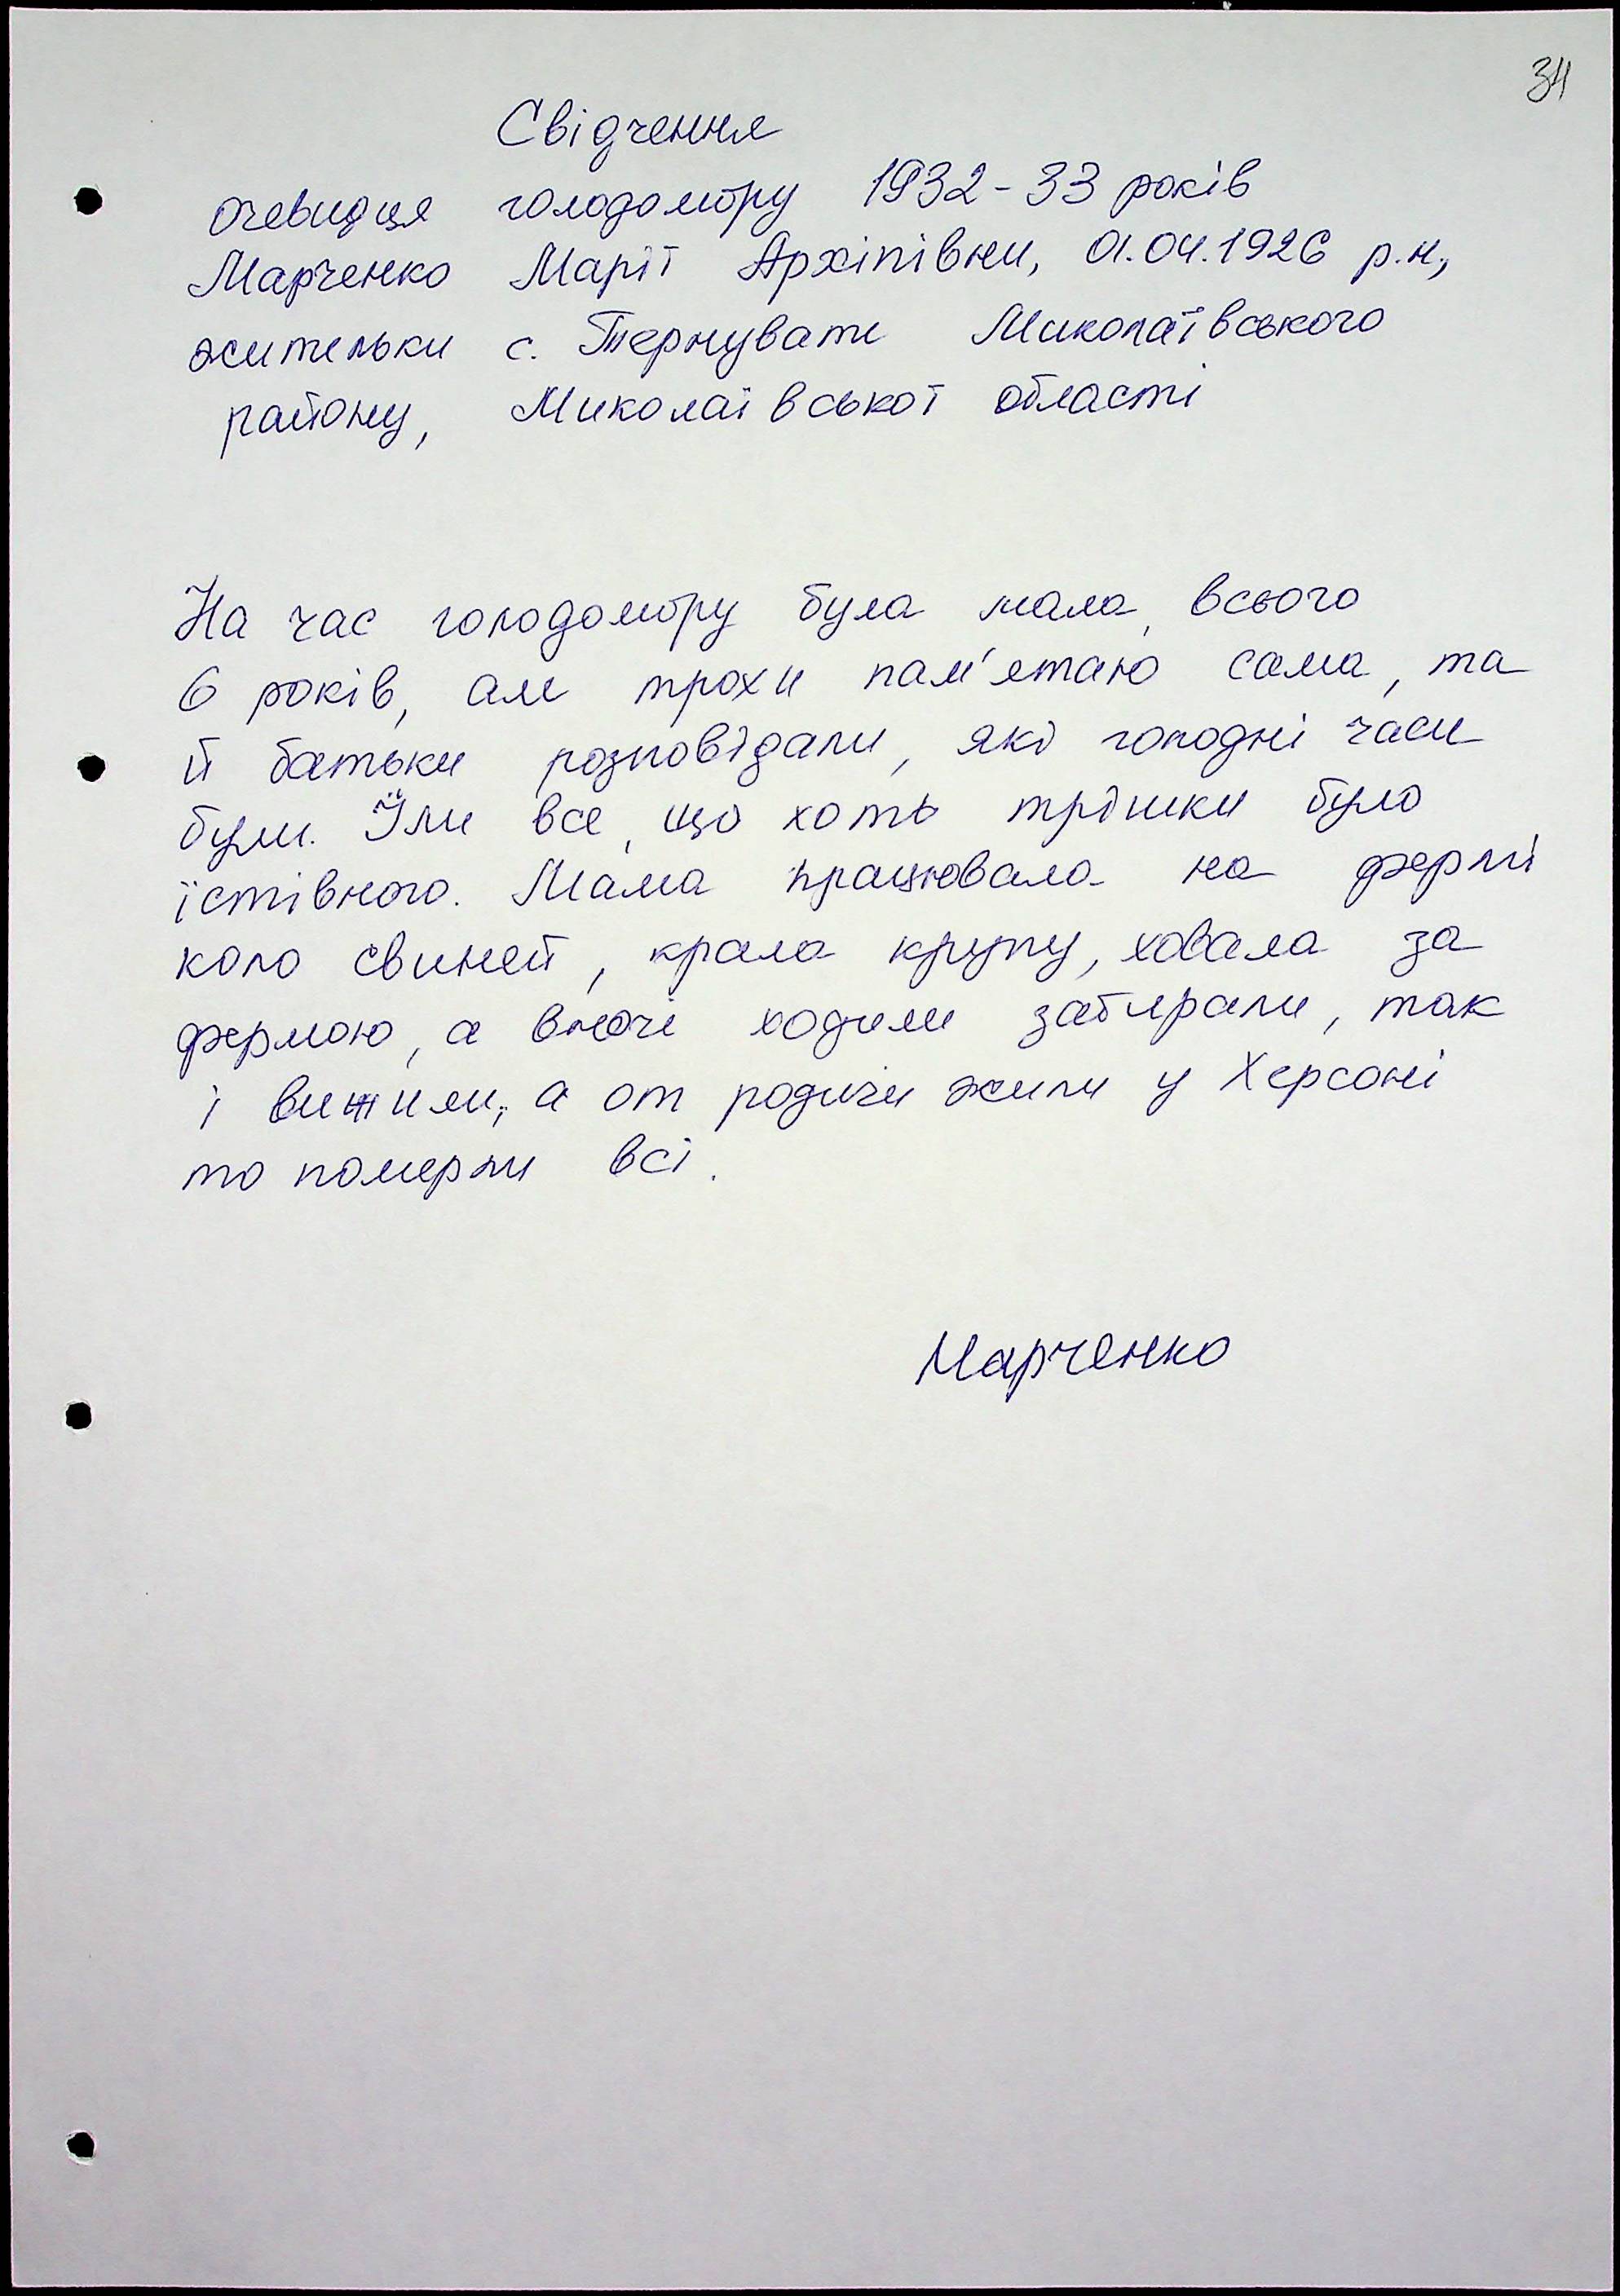 34
Свідчення
очевидця голодомору 1932-33 років
Марченко Марії Архіпівни, 01.04.1926 р.н.,
жительки с. Тернувате Миколаївського
району, Миколаївської області
На час голодомору була мала, всього
6 років, але трохи пам'ятаю сама, та
й батьки розповідали, які голодні часи
були. Їли все, що хоть трішки було
їстівного. Мама працювала на фермі
коло свиней, крала крупу, ховала за
фермою, а вночі ходили забирали, так
і вижили, а от родичи жили у Херсоні
то померли всі.
Марченко